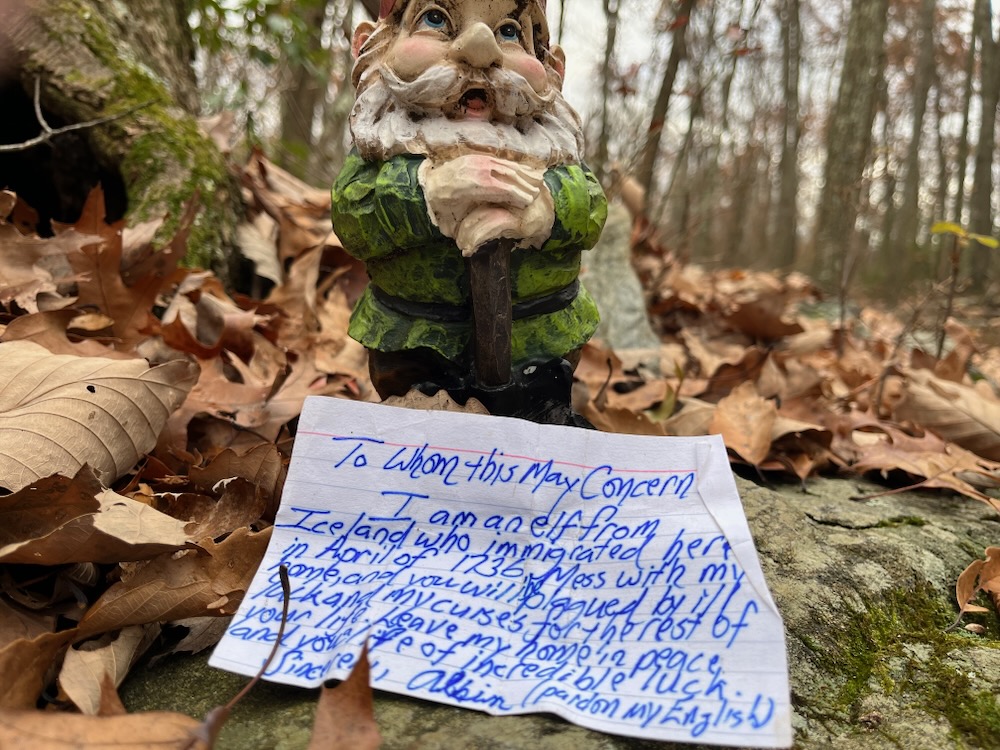 To Whom this May Concern
I am an elf from
Iceland who immigrated here
in April of 1736. Mess with my
home, and you will be plagued by ill
luck and my curses for the rest of
your life. Leave my home in peace,
and your life of incredible luck.
Sincerely, Albin (pardon my English)